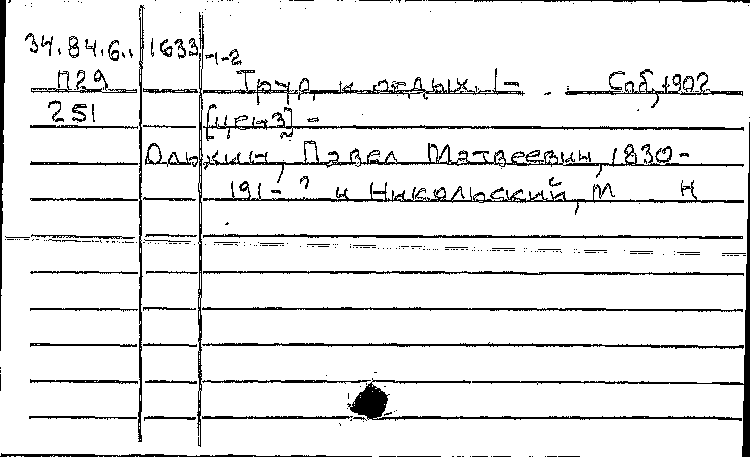 34.84.6.. 1633-1-2
П29 Труд и отдых. 1- . Спб, 1902
251 [ценз] -
Ольхин, Павел Матвеевич, 1830-
191-? и Никольский, М Н